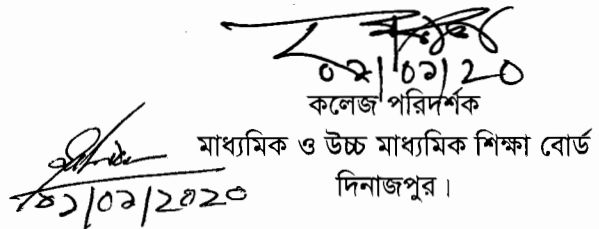 ০২/০১/২০
কলেজ পরিদর্শক
মাধ্যমিক ও উচ্চ মাধ্যমিক শিক্ষা বোর্ড
দিনাজপুর।
০১/০১/২০২০